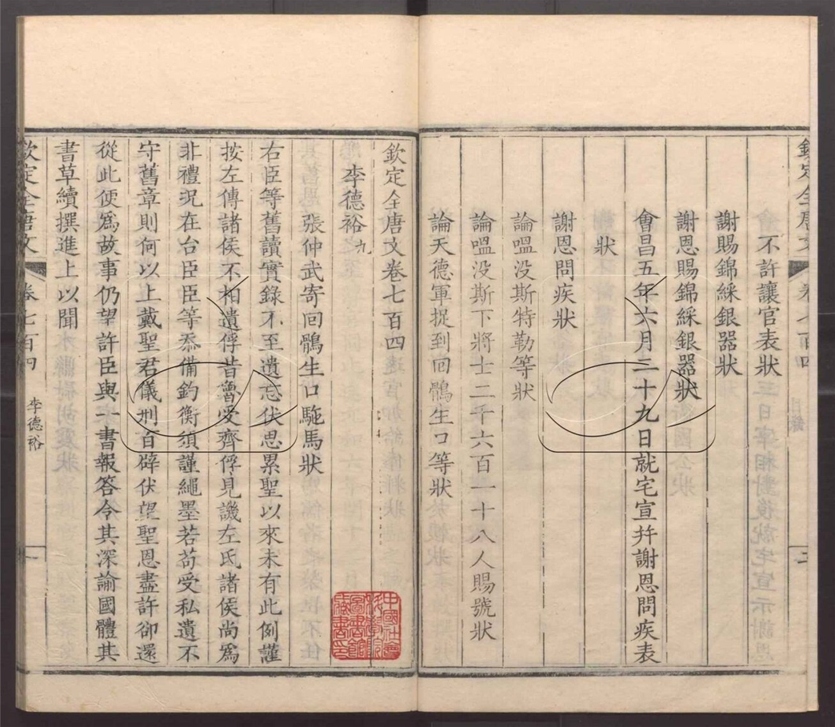 欽定全唐文
卷七百四
目錄
二
不許讓官表狀
謝賜錦綵銀器狀
謝恩賜錦綵銀器狀
會昌五年六月二十九日就宅宣幷謝恩問疾表
狀
謝恩問疾狀
論嗢没斯特勒等狀
論嗢没斯下將士二千六百一十八人賜號狀
論天德軍捉到回鶻生口等狀
欽定全唐文卷七百四
李德裕九
張仲武寄回鶻生口駞馬狀
右臣等舊讀實錄不至遺忘伏思累聖以來未有此例謹
按左傳諸侯不相遺俘昔魯受齊俘見譏左氏諸侯尚爲
非禮況在台臣臣等忝備鈞衡須謹繩墨若苟受私遺不
守舊章則何以上戴聖君儀刑百辟伏望聖恩盡許卻還
從此便爲故事仍望許臣與一書報答令其深諭國體其
書草續撰進上以聞
欽定全唐文
卷七百四
李德裕
一